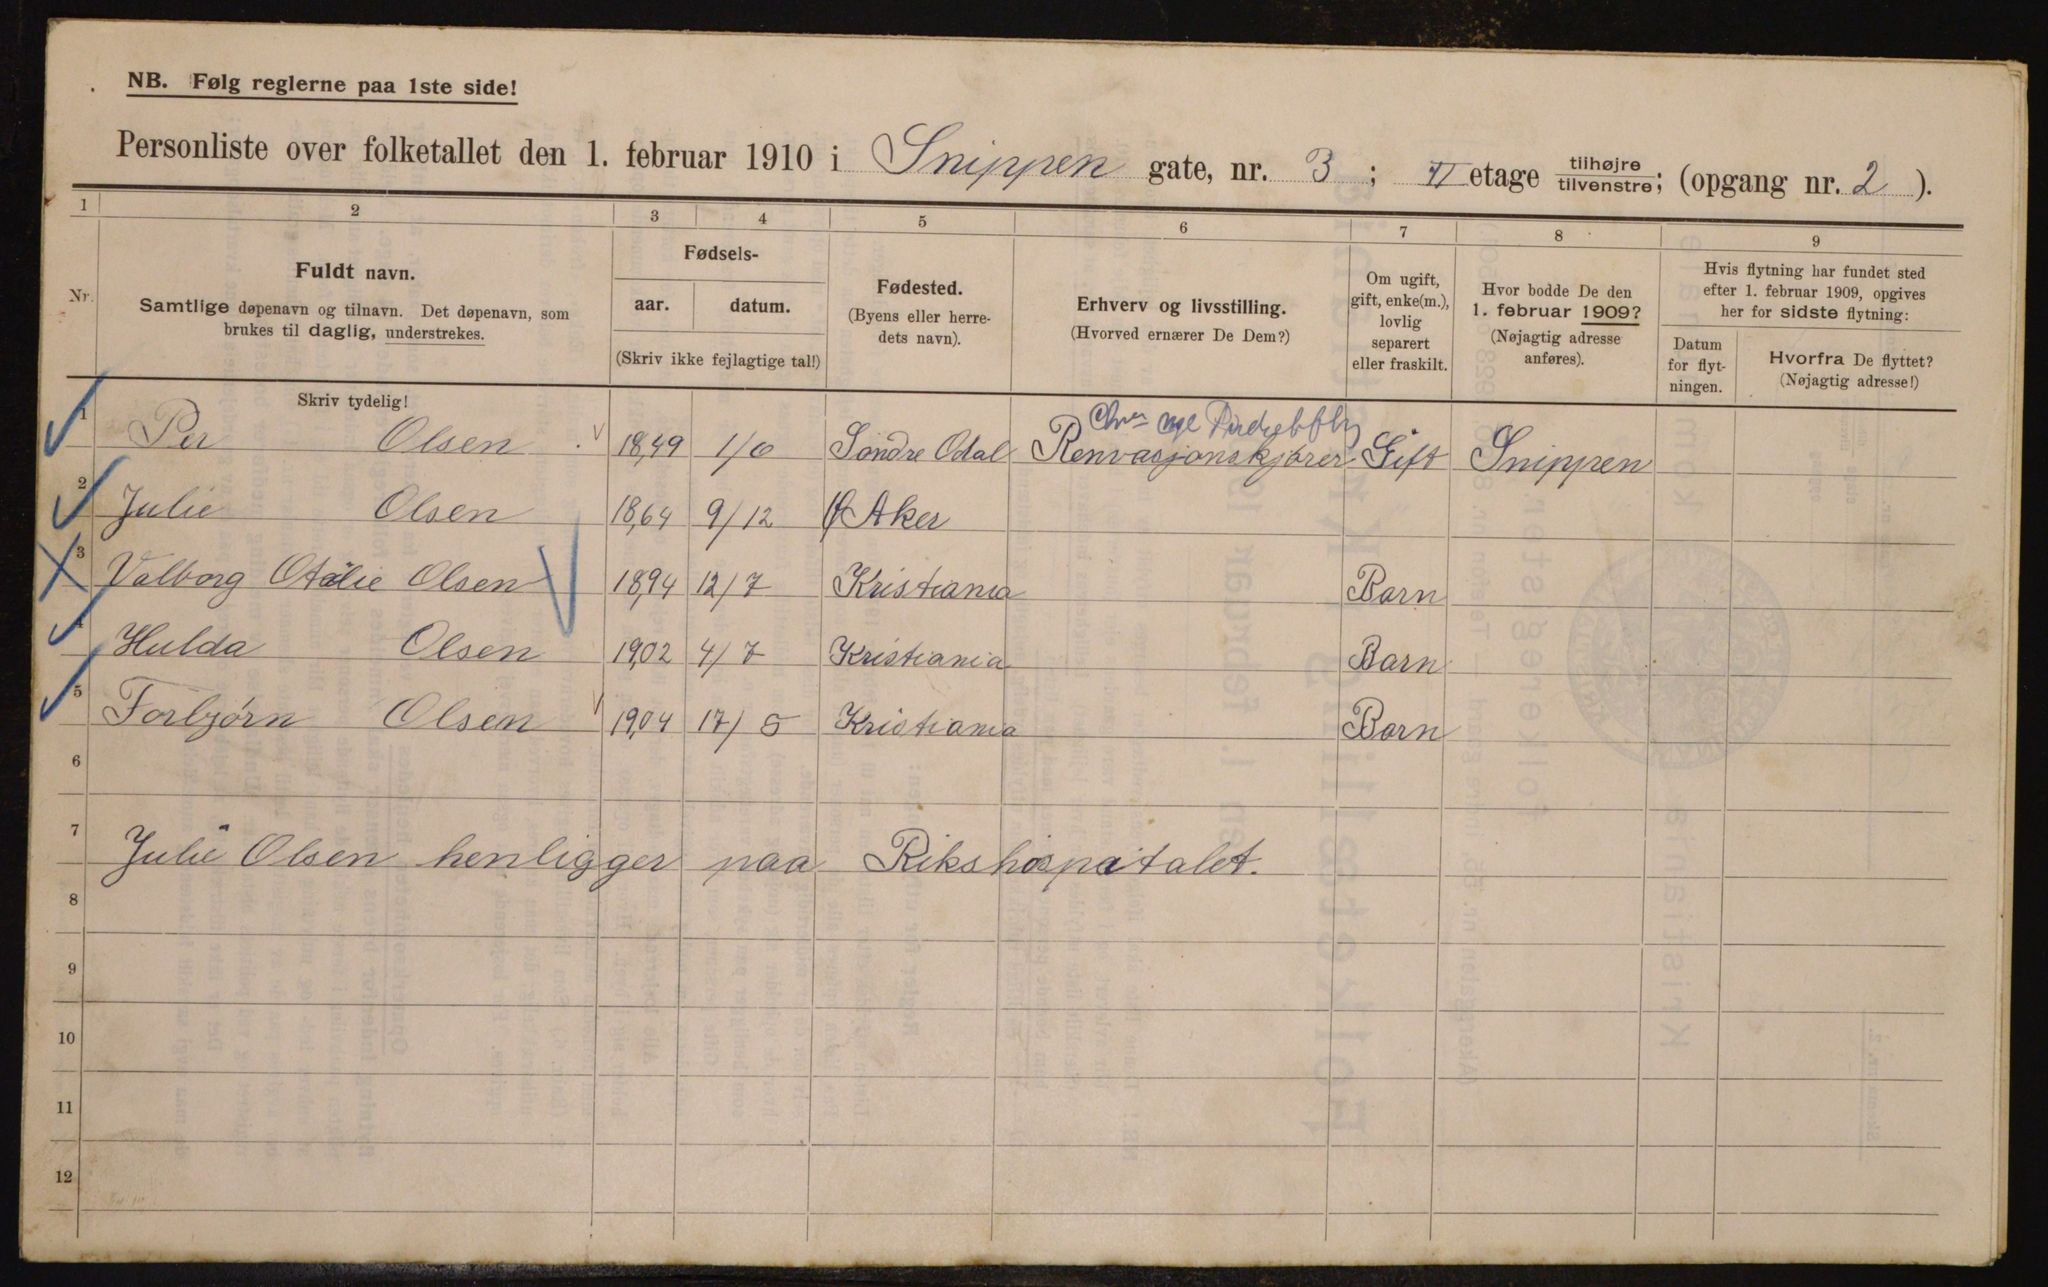 NB. Følg reglerne paa 1ste side!
Personliste over folketallet den 1. februar 1910 i Snippen gate, nr. 3 ; VI etage tilhøjre/tilvenstre; (opgang nr. 2 ).
1 2 3 4 5 6 7 8 9
Nr.
Fuldt navn.
Samtlige døpenavn og tilnavn. Det døpenavn, som
brukes til daglig, understrekes.
Fødsels-
aar. datum.
(Skriv ikke fejlagtige tal!)
Fødested.
(Byens eller herre-
dets navn).
Erhverv og livsstilling.
(Hvorved ernærer De Dem?)
Om ugift,
gift, enke(m.),
lovlig
separert
eller fraskilt.
Hvor bodde De den
1. februar 1909?
(Nøjagtig adresse
anføres).
Hvis flytning har fundet sted
efter 1. februar 1909, opgives
her for sidste flytning:
Datum
for flyt-
ningen.
Hvorfra De flyttet?
(Nøjagtig adresse!)
Skriv tydelig!
1 Per Olsen 1849 1/6 Søndre Odal Renvasjonskjører Gift Snippen
2 Julie Olsen 1864 9/12 Aker
3 Valborg Otelie Olsen 1894 12/7 Kristiania Barn
4 Hulda Olsen 1902 4/7 Kristiania Barn
5 Torbjørn Olsen 1904 17/5 Kristiania Barn
6
7
Julie Olsen henligger paa Rikshospitalet.
8
9
10
11
12